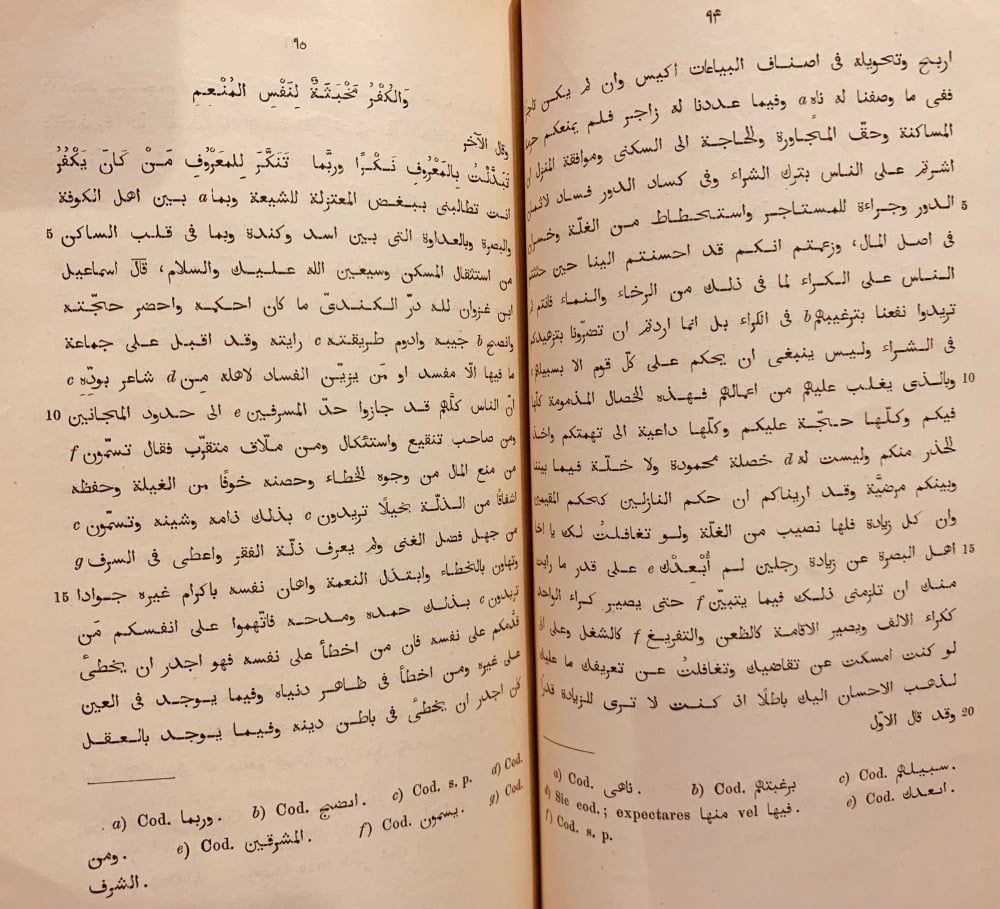 ٩۴
اربح وتحويله فى اصناف البياعات اكيس وان لم يكن
ففى ما وصفنا له ناه a وفيما عددنا له زاجر فلم يمنعكم
المساكنة وحقّ المجاورة والحاجة الى السكنى وموافقة المنزل
اشرتم على الناس بترك الشراء وفى كساد الدور فساد
5 الدور وجراءة للمستاجر واستحطاط من الغلّة
فى اصل المال، وزعمتم انكم قد احسنتم الينا حين
الناس على الكراء لما فى ذلك من الرخاء والنماء فانتم
تريدوا نفعنا بترغيبهم b فى الكراء بل انما اردتم ان تضرّونا
فى الشراء وليس ينبغى ان يحكم على كلّ قوم الا بسبيلهم
10 وبالذى يغلب عليهم من اعمالهم فهذه الخصال المذمومة كلّها
فيكم وكلّها حجّة عليكم وكلّها داعية الى تهمتكم
الحذر منكم وليست له d خصلة محمودة ولا خلّة فيما بيننا
وبينكم مرضيّة وقد اريناكم ان حكم النازلين كحكم المقيمين
وان كل زيادة فلها نصيب من الغلّة ولو تغافلتُ لك يا اخا
15 اهل البصرة عن زيادة رجلين لم أُبْعِدْك e على قدر ما رايت
منك ان تلزمنى ذلك فيما يتبيّن f حتى يصير كراء الواحد
ككراء الالف ويصير الاقامة كالظعن والتفريغ f كالشغل وعلى انى
لو كنت امسكت عن تقاضيك وتغافلتُ عن تعريفك ما عليك
لذهب الاحسان اليك باطلًا اذ كنت لا ترى للزيادة
20 وقد قال الاوّل
a) Cod. ناهى. b) Cod. برغبتهم c) Cod. سبيلهم.
d) Sic cod.; expectares منها vel فيها. e) Cod. انعدك.
f) Cod. s. p.
٩٥
وَالكُفْرُ مَخْبَثَةٌ لِنَفْسِ المُنْعِمِ
وقال الآخر
تَبَدَّلْتُ بِالمَعْرُوفِ نَكْرًا وربَّما تَنَكَّرَ لِلمَعْرُوفِ مَنْ كَانَ يَكْفُرُ
انت تطالبنى ببغض المعتزلة للشيعة وبما a بين اهل الكوفة
5 والبصرة وبالعداوة التى بين اسد وكندة وبما فى قلب الساكن
من استثقال المسكن وسيعين الله عليك والسلام، قال اسماعيل
ابن غزوان لله درّ الكندىّ ما كان احكمه واحضر حجّته
وانصح b جيبه وادوم طريقته c رايته وقد اقبل على جماعة
ما فيها الّا مفسد او مَن يزيّن الفساد لاهله من d شاعر بودّه c
10 انّ الناس كلّهم قد جازوا حدّ المسرفين e الى حدود المجانين
ومن صاحب تنقيع واستئكال ومن ملّاق متقرّب فقال تسمّون f
من منع المال من وجوه الخطاء وحصنه خوفًا من الغيلة وحفظه
اشفاقًا من الذلّة بخيلًا تريدون c بذلك ذامه وشينه وتسمّون c
من جهل فضل الغنى ولم يعرف ذلّة الفقر واعطى فى السرف g
15 وتهاون بالخطاء وابتذل النعمة واهان نفسه باكرام غيره جوادا
تريدون c بذلك حمده ومدحه فاتّهموا على انفسكم مَن
قدّمكم على نفسه فان من اخطأ على نفسه فهو اجدر ان يخطئ
على غيره ومن اخطأ فى ظاهر دنياه وفيما يوجد فى العين
كان اجدر ان يخطئ فى باطن دينه وفيما يوجد بالعقل
a) Cod. وربما. b) Cod. امضح. c) Cod. s. p. d) Cod.
ومن. e) Cod. المشرقين. f) Cod. يسمون. g) Cod.
الشرف.